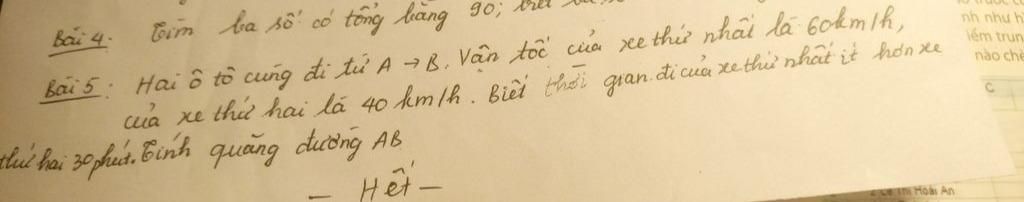 Bài 4. Tìm ba số có tổng bằng 90; biết
Bài 5: Hai ô tô cùng đi từ A → B. Vận tốc của xe thứ nhất là 60km/h,
của xe thứ hai là 40 km/h. Biết thời gian đi của xe thứ nhất ít hơn xe
thứ hai 30 phút. Tính quãng đường AB
— Hết —
nh như h
iểm trun
nào chè
C
Lê Thị Hoài An